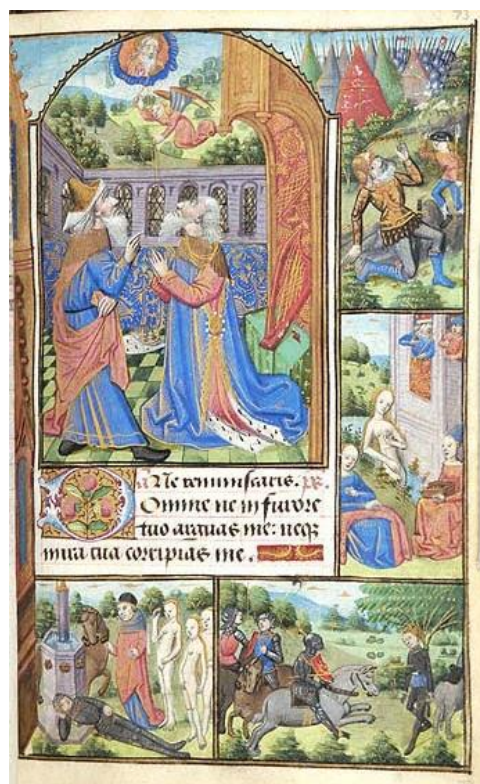 Ne reminiscaris. ps.
Domine ne in furore
tuo arguas me: neq
in ira tua corripias me.